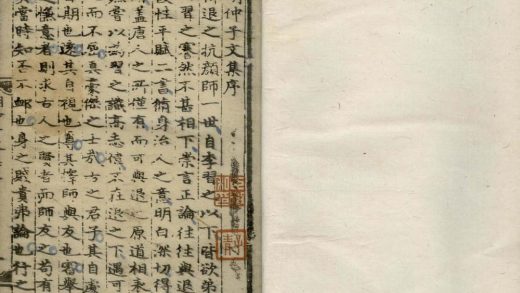 仲子文集序
退之抗顏師一世自李習之以下皆欲弟
習之謇然不甚相下崇言正論往往與退
性平賦二書脩身治人之意明白深切得
盖唐人之所僅有而可與退之原道相
嘗以為習之識高志偉不在退之下遇可
而不屈真豪傑之士哉古之君子其自處
期也遠其自視也尊其擇師與友也嚴舉
慊意者則求古人之賢者而師友之苟有
當時知否不邮也身之賤貴弗論也行之
靜